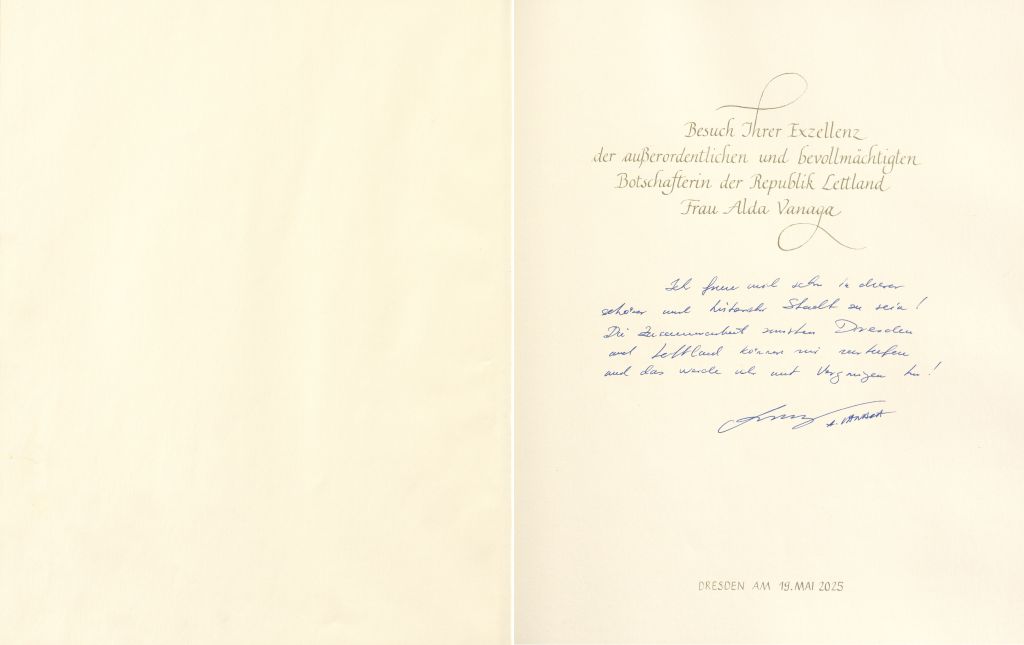 Besuch Ihrer Exzellenz
der außerordentlichen und bevollmächtigten
Botschafterin der Republik Lettland
Frau Alda Vanaga
Ich freue mich sehr in dieser
schönen und historischen Stadt zu sein!
Die Zusammenarbeit zwischen Dresden
und Lettland können wir vertiefen
und das werde ich mit Vergnügen tun!
A. VANAGA
DRESDEN AM 19. MAI 2025